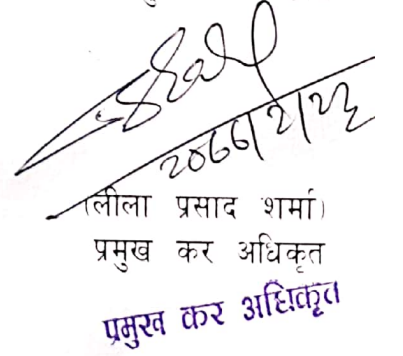 २०७७/२/२६
(लीला प्रसाद शर्मा)
प्रमुख कर अधिकृत
प्रमुख कर अधिकृत